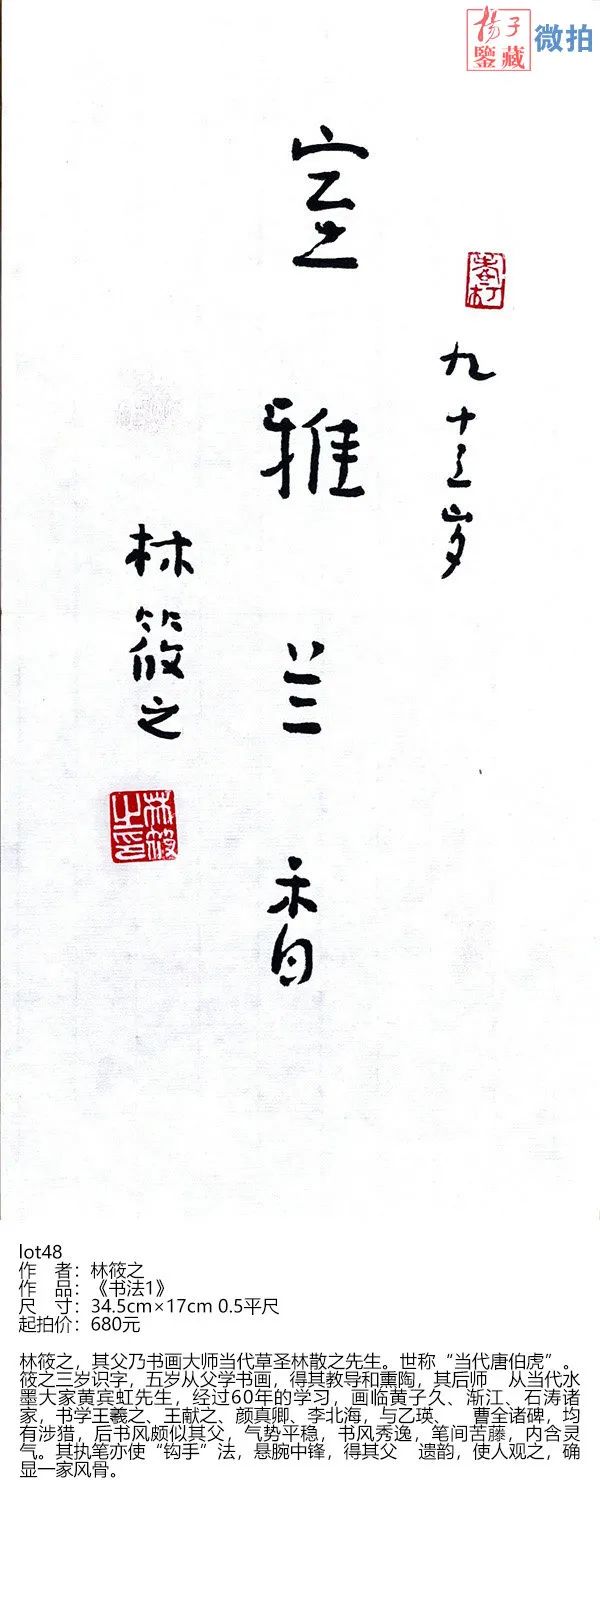 揚子
鑒藏
微拍
九十三岁
室雅兰香
林筱之
林筱之印
lot48
作 者：林筱之
作 品：《书法1》
尺 寸：34.5cm×17cm 0.5平尺
起拍价：680元
林筱之，其父乃书画大师当代草圣林散之先生。世称“当代唐伯虎”。
筱之三岁识字，五岁从父学书画，得其教导和熏陶，其后师 从当代水
墨大家黄宾虹先生，经过60年的学习，画临黄子久、渐江、石涛诸
家，书学王羲之、王献之、颜真卿、李北海，与乙瑛、 曹全诸碑，均
有涉猎，后书风颇似其父，气势平稳，书风秀逸，笔间苦藤，内含灵
气。其执笔亦使“钩手”法，悬腕中锋，得其父 遗韵，使人观之，确
显一家风骨。